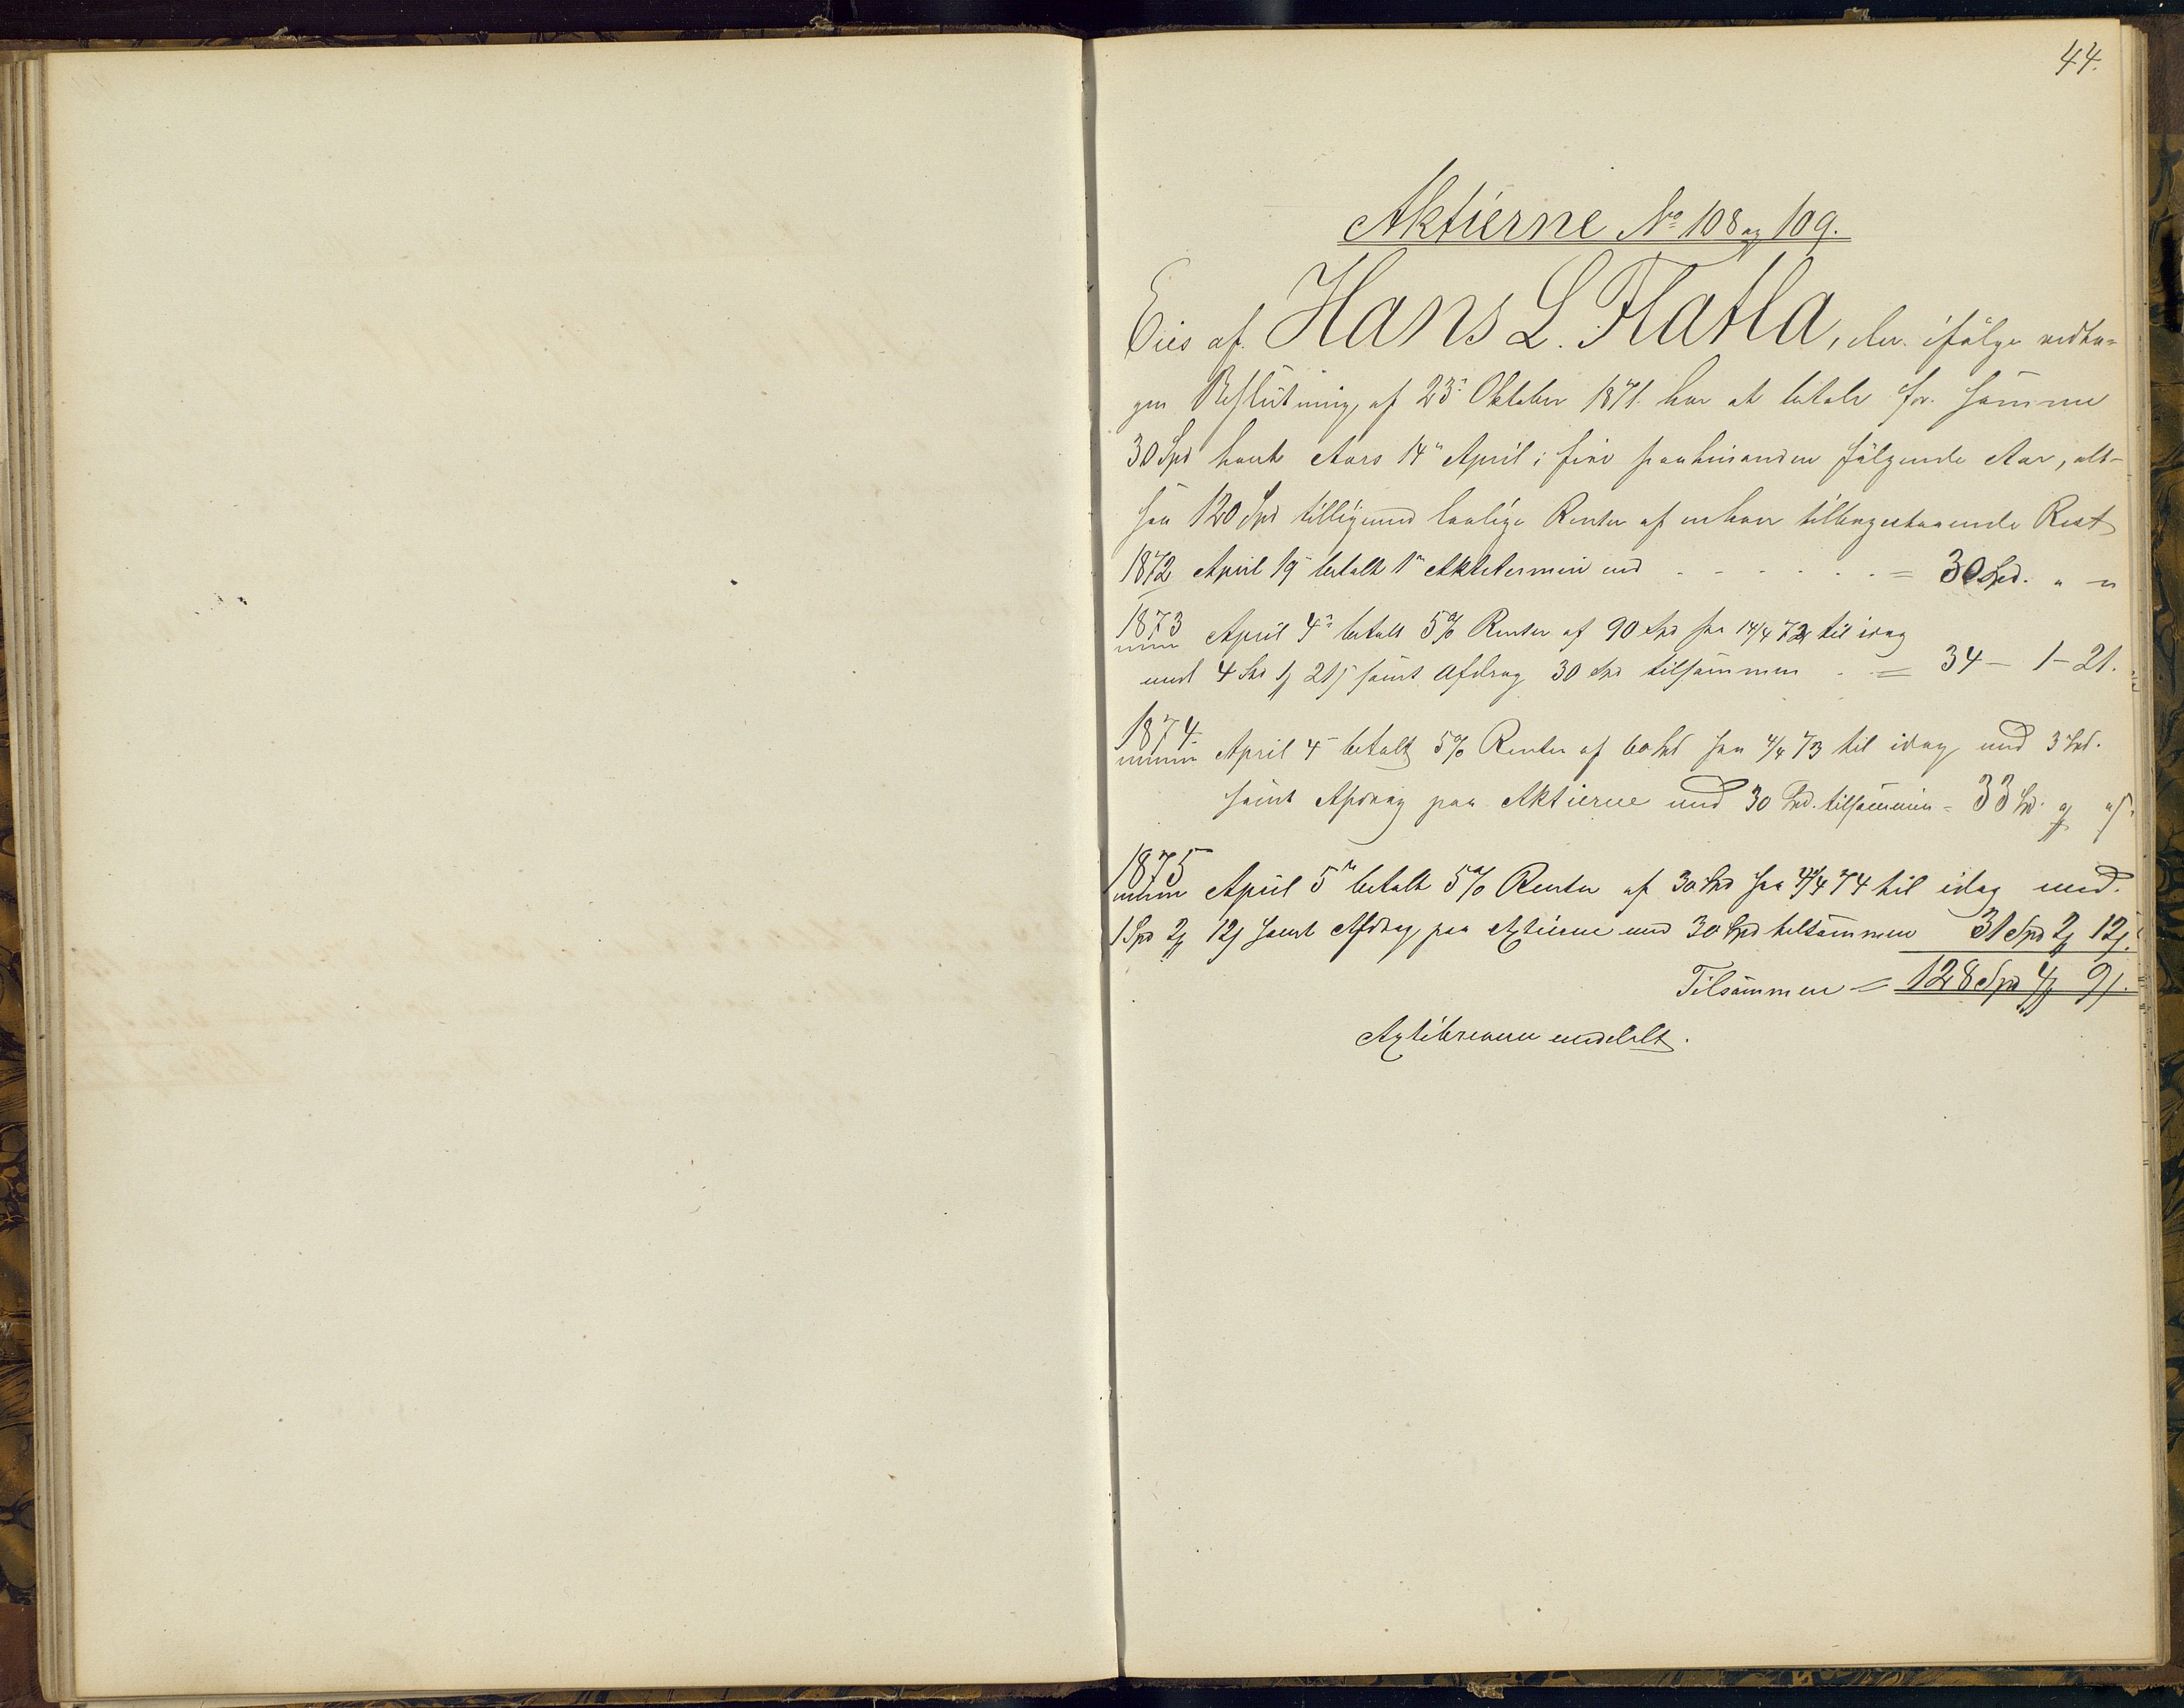 44.
Aktierne No 108 og 109.
Eies af Hans L. Flatla, der ifølge vedta-
gen Beslutning af 23de Oktober 1871 har at betale for samme
30 Spd hvert Aars 14de April i fire paahinanden følgende Aar, alt-
saa 120 Spd tilligemed lovlige Renter af enhver tilbagestaaende Rest
1872 April 19de betalt 1ste Aktietermin med - - - - - - = 30 Spd. " "
1873 April 4de betalt 5% Renter af 90 Spd fra 14/4 72 til idag
med 4 Spd 1 21 samt Afdrag 30 Spd tilsammen - = 34 - 1 - 21.
1874. April 4de betalt 5% Renter af 60 Spd fra 4/4 73 til idag med 3 Spd.
samt Afdrag paa Aktierne med 30 Spd. tilsammen = 33 Spd. " "
1875 April 5te betalt 5% Renter af 30 Spd fra 4/4 74 til idag med.
1 Spd 2 12 samt Afdrag paa Aktierne med 30 Spd tilsammen 31 Spd 2 12.
Tilsammen = 128 Spd 4 9.
Aktiebrevene meddelt.